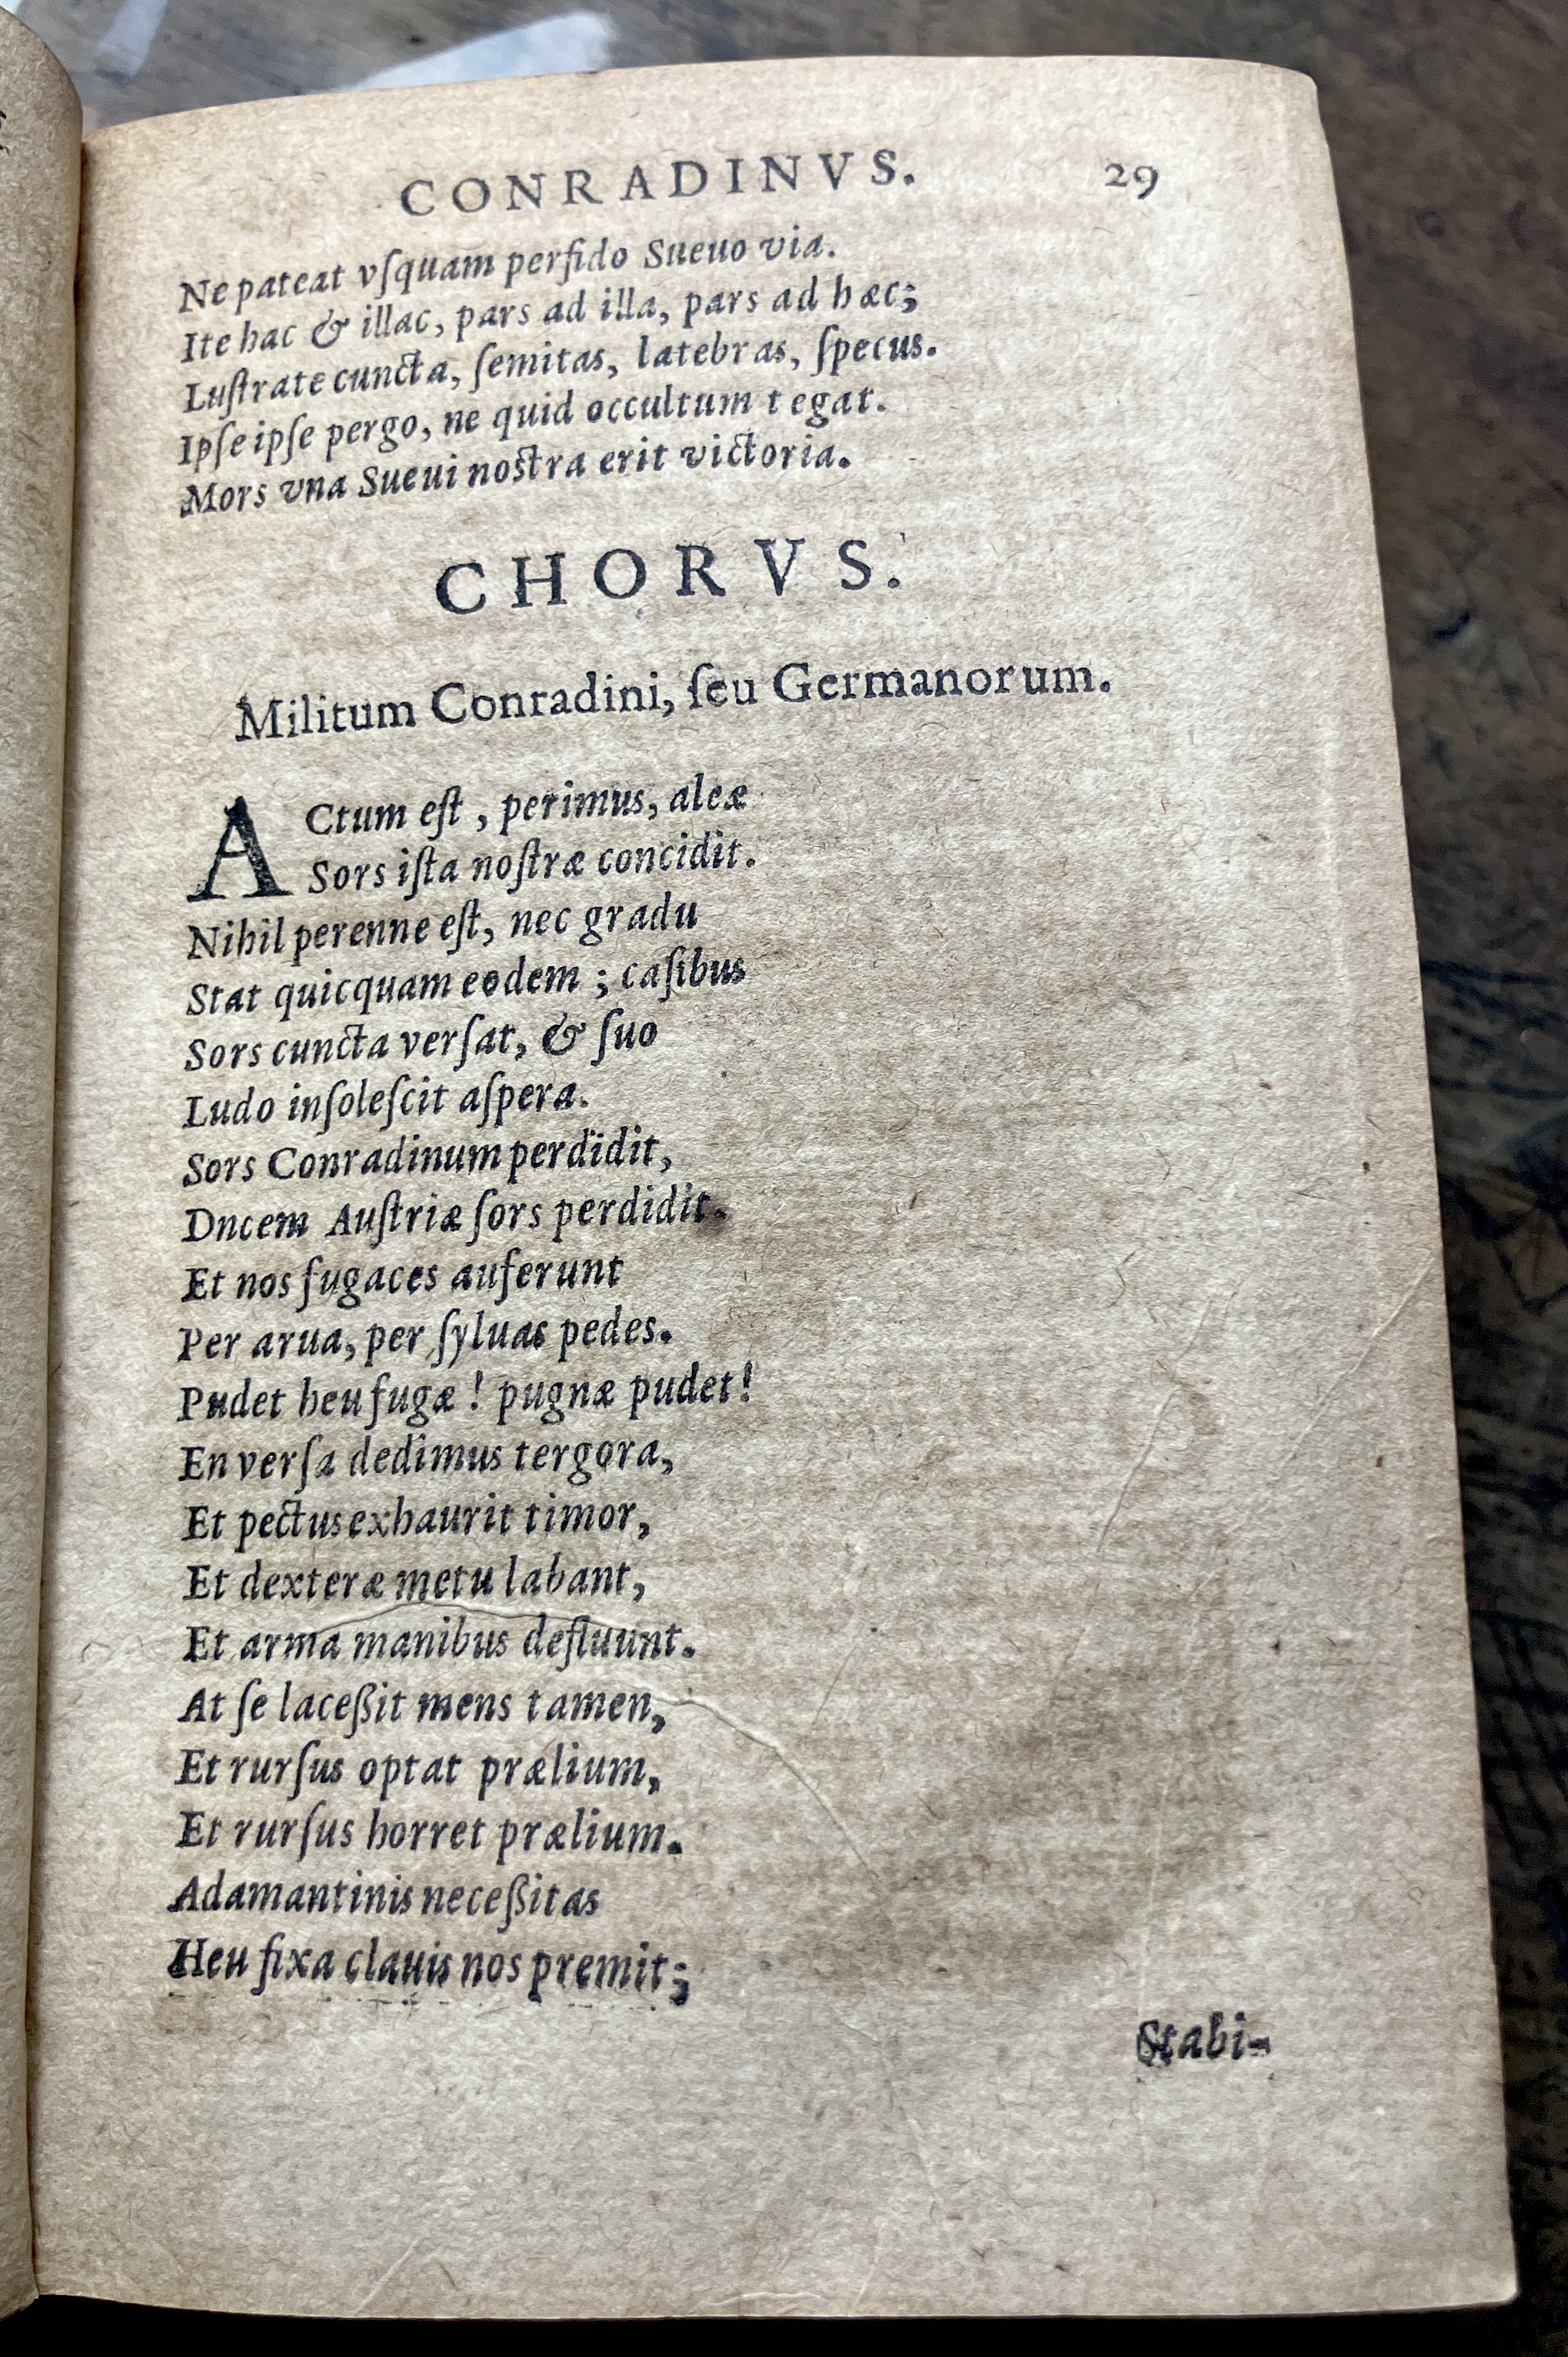 CONRADINVS. 29
Ne pateat vſquam perfido Sueuo via.
Ite hac & illac, pars ad illa, pars ad hæc;
Luſtrate cuncta, ſemitas, latebras, ſpecus.
Ipſe ipſe pergo, ne quid occultum tegat.
Mors vna Sueui noſtra erit victoria.
CHORVS.
Militum Conradini, ſeu Germanorum.
ACtum eſt, perimus, aleæ
Sors iſta noſtræ concidit.
Nihil perenne eſt, nec gradu
Stat quicquam eodem; caſibus
Sors cuncta verſat, & ſuo
Ludo inſoleſcit aſpera.
Sors Conradinum perdidit,
Dncem Auſtriæ ſors perdidit.
Et nos fugaces auferunt
Per arua, per ſyluas pedes.
Pudet heu fugæ! pugnæ pudet!
En verſa dedimus tergora,
Et pectus exhaurit timor,
Et dexteræ metu labant,
Et arma manibus defluunt.
At ſe laceßit mens tamen,
Et rurſus optat prælium,
Et rurſus horret prælium.
Adamantinis neceßitas
Heu fixa clauis nos premit;
Stabi-